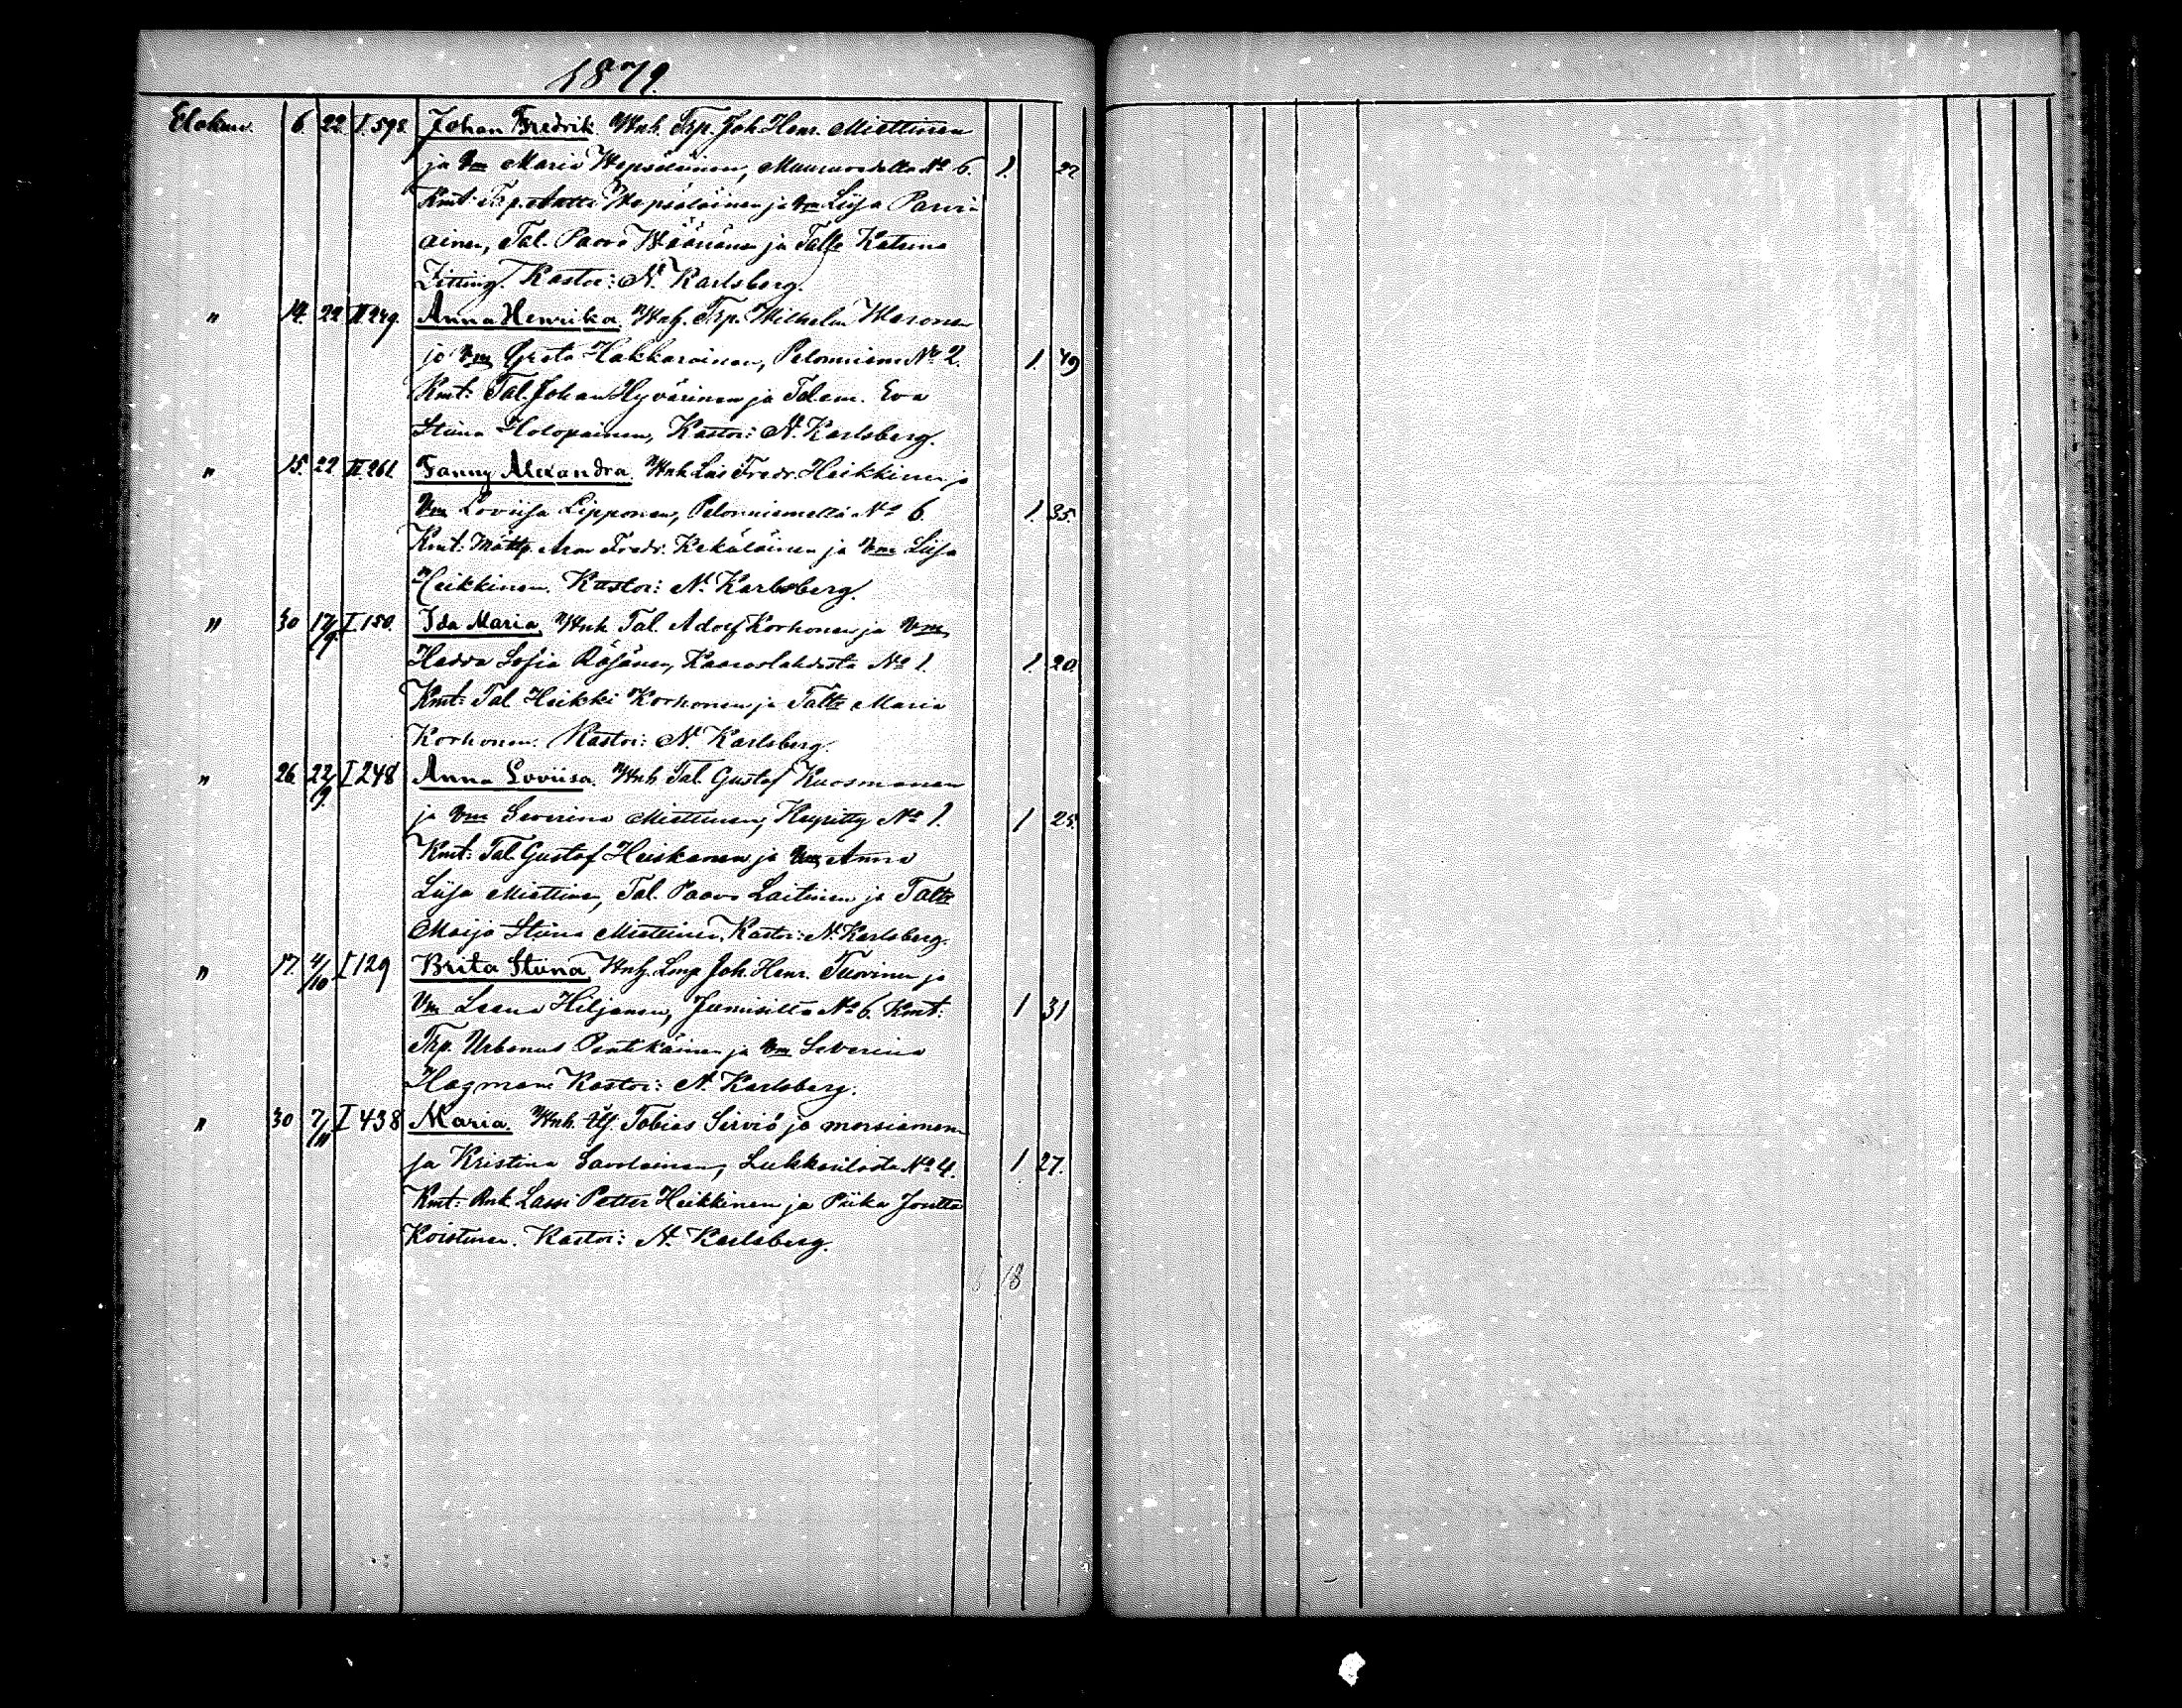 1879.
Elokuu. 6. 22. I.598. Johan Fredrik. Wnh. Trp. Joh. Henr. Miettinen
ja Vm Maria Wepsäläinen, Muuruvedella No 6. 1. 22
Kmt: Trp. Antti Wepsäläinen ja Vm Liisa Parvi-
ainen, Tal. Paavo Väänänen ja Talle Katrina
Zitting. Kastoi: N. Karlsberg.
" 14. 22 II 249. Anna Henrika. Wnh. Trp. Wilhelm
ja Vm Greta Hakkarainen, Pelonniemi No 2. 1. 49
Kmt: Tal. Johan Hyvärinen ja Tal.em. Eva
Stiina Holopainen, Kastoi: N. Karlsberg.
" 15. 22 II.261 Fanny Alexandra. Wnh Fredr. Heikkinen ja
Vm Loviisa Lipponen, Pelonniemellä No 6. 1. 35.
Kmt: Fredr. Kekäläinen ja Vm Liisa
Heikkinen. Kastoi: N. Karlsberg.
" 30 17/9. I.150. Ida Maria, Wnh Tal. Adolf Korhonen ja Vm
Hedda Sofia Räsänen, Kaavi No 1. 1. 20
Kmt: Tal Heikki Korhonen ja Taltr Maria
Korhonen. Kastoi: N. Karlsberg.
" 26 22/9. I 248 Anna Loviisa. Wnh Tal. Gustaf Kuosmanen
ja Vm Severina Miettinen, Keyritty No 1. 1 25.
Kmt: Tal. Gustaf Heiskanen ja Vm Anna
Liisa Miettinen, Tal. Paavo Laitinen ja Taltr
Maija Stiina Miettinen, Kastoi: N. Karlsberg.
" 17. 4/10 I 129 Brita Stiina Wnh. Lmp Joh. Henr. Tuovinen ja
Vm Leena Hiljanen, No 6. Kmt: 1 31
Trp. Urbanus Pentikäinen ja Vm Severina
Hagman. Kastoi: N. Karlsberg.
" 30 7/11 I 438 Maria. Wnh. Tobias Serviö ja morsiamen-
sa Kristina Savolainen, No 4. 1 27.
Kmt: Rnk Lassi Petter Heikkinen ja Piika
Koistinen. Kastoi: N. Karlsberg.
8 18